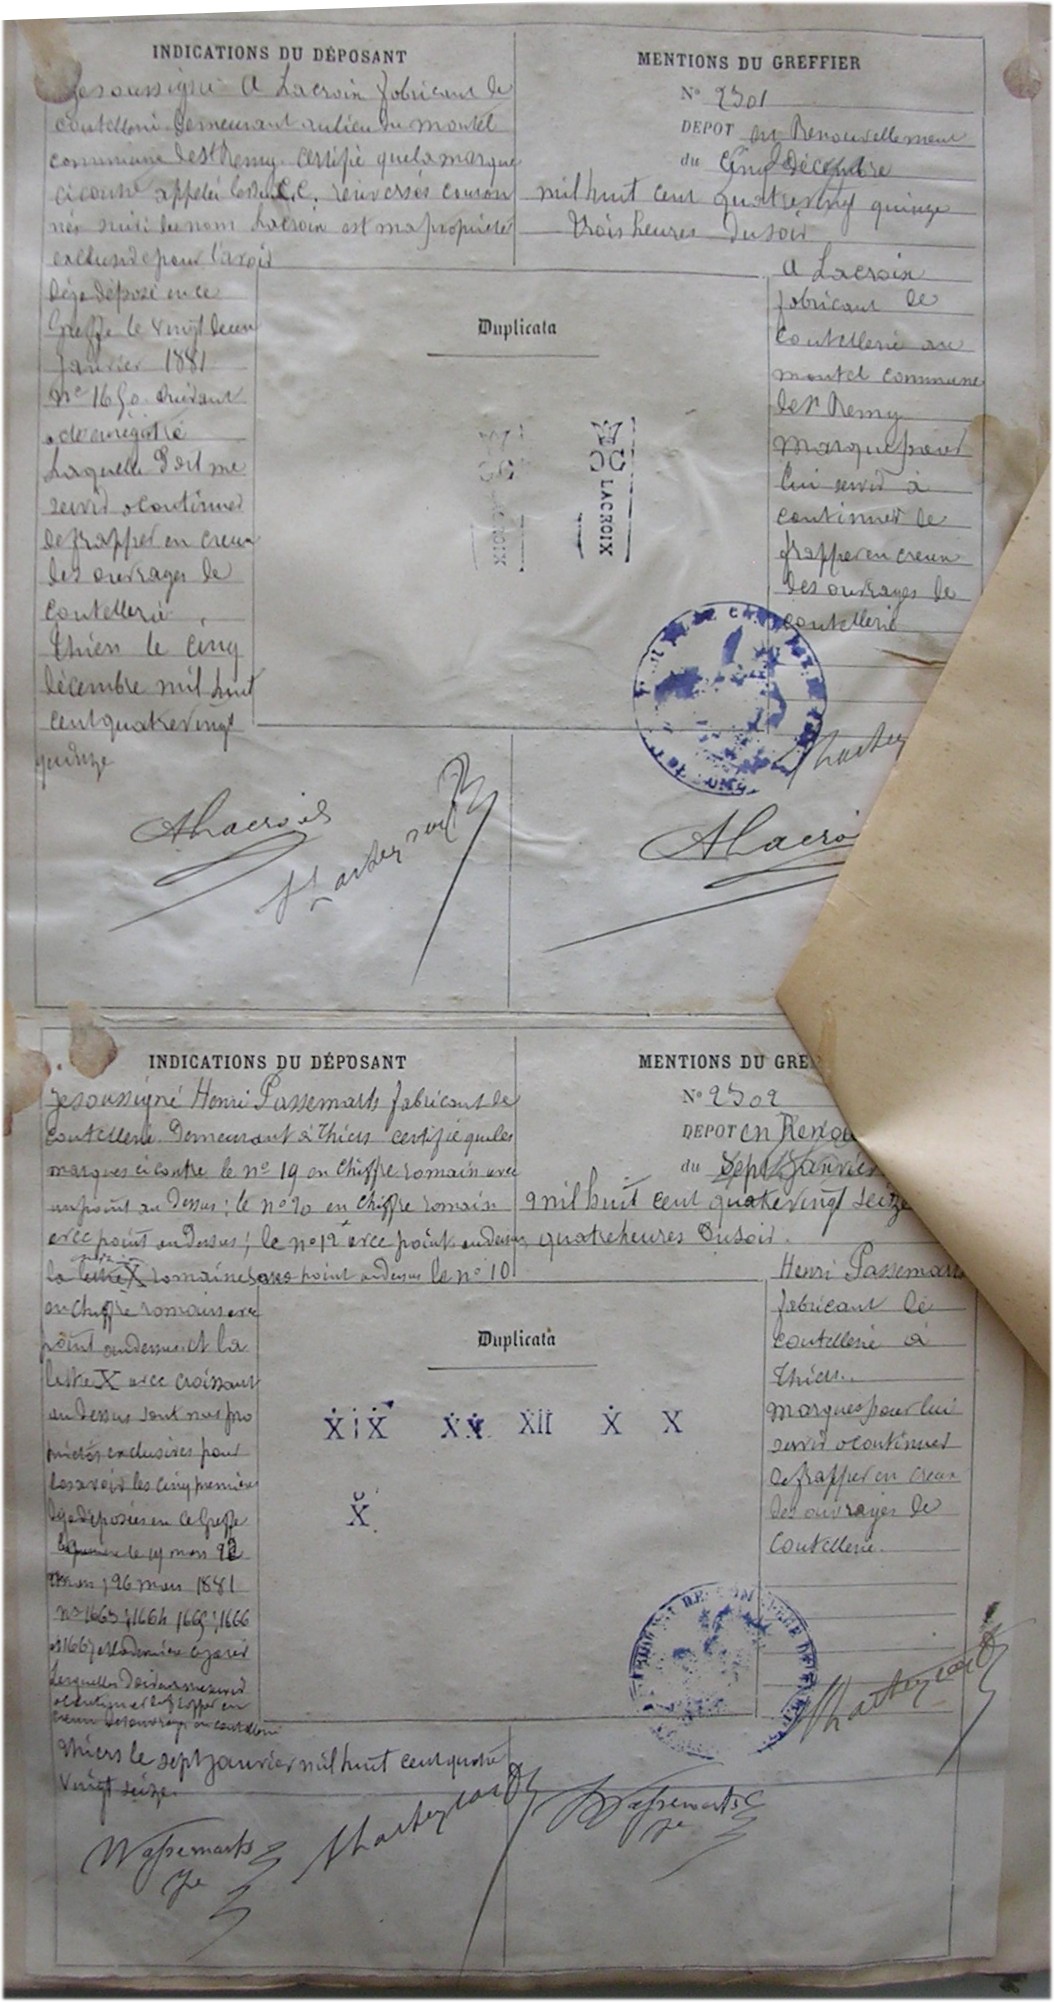 INDICATIONS DU DÉPOSANT
Je soussigné A Lacroix fabricant de
coutellerie demeurant au lieu du montel
commune de St Remy certifie que la marque
ci contre appelée les deux C.C. renversés couron
nés suivi du nom Lacroix est ma propriété
exclusive pour l'avoir
déja déposé en ce
Greffe le vingt deux
Janvier 1881
suivant
Laquelle doit me
servir a continuer
de frapper en creux
des ouvrages de
coutellerie
Thiers le cinq
décembre mil huit
cent quatrevingt
quinze
MENTIONS DU GREFFIER
N° 2301
DEPOT en Renouvellement
du Cinq Décembre
mil huit cent quatrevingt quinze
trois heures du soir
A Lacroix
fabricant de
coutellerie au
montel commune
de St Remy
marque pour
lui servir à
continuer de
frapper en creux
des ouvrages de
coutellerie
Duplicata
CC LACROIX
CC
ALacroix
ALacroi
INDICATIONS DU DÉPOSANT
Je soussigné Henri Passemards fabricant de
coutellerie demeurant à Thiers certifie que les
marques ci contre le n° 19 en chiffre romain avec
un point au dessus; le n° 20 en chiffre romain
avec point au dessus; le n° 12 avec point au dessus
la lettre X romaine sans point au dessus le n° 10
en chiffre romain avec
point au dessus et la
lettre X avec croissant
au dessus sont mes pro
priétés exclusives pour
les avoir les cinq premières
déja déposées en ce Greffe
le 19 mars
26 mars 1881
n° 1663; 1664, 1665; 1666
et 1667 et la dernière ce jour
Lesquelles doivent me servir
a continuer de frapper en
creux des ouvrages en coutellerie
Thiers le sept janvier mil huit cent quatre
vingt seize
MENTIONS DU GRE
N° 2302
DEPOT en Renou
du Sept Janvier
mil huit cent quatrevingt seize
quatre heures du soir.
Henri Passemards
fabricant de
coutellerie à
Thiers.
marques pour lui
servir a continuer
de frapper en creux
des ouvrages de
coutellerie.
Duplicata
ẊiẊ ẊẊ XII Ẋ X
X̆